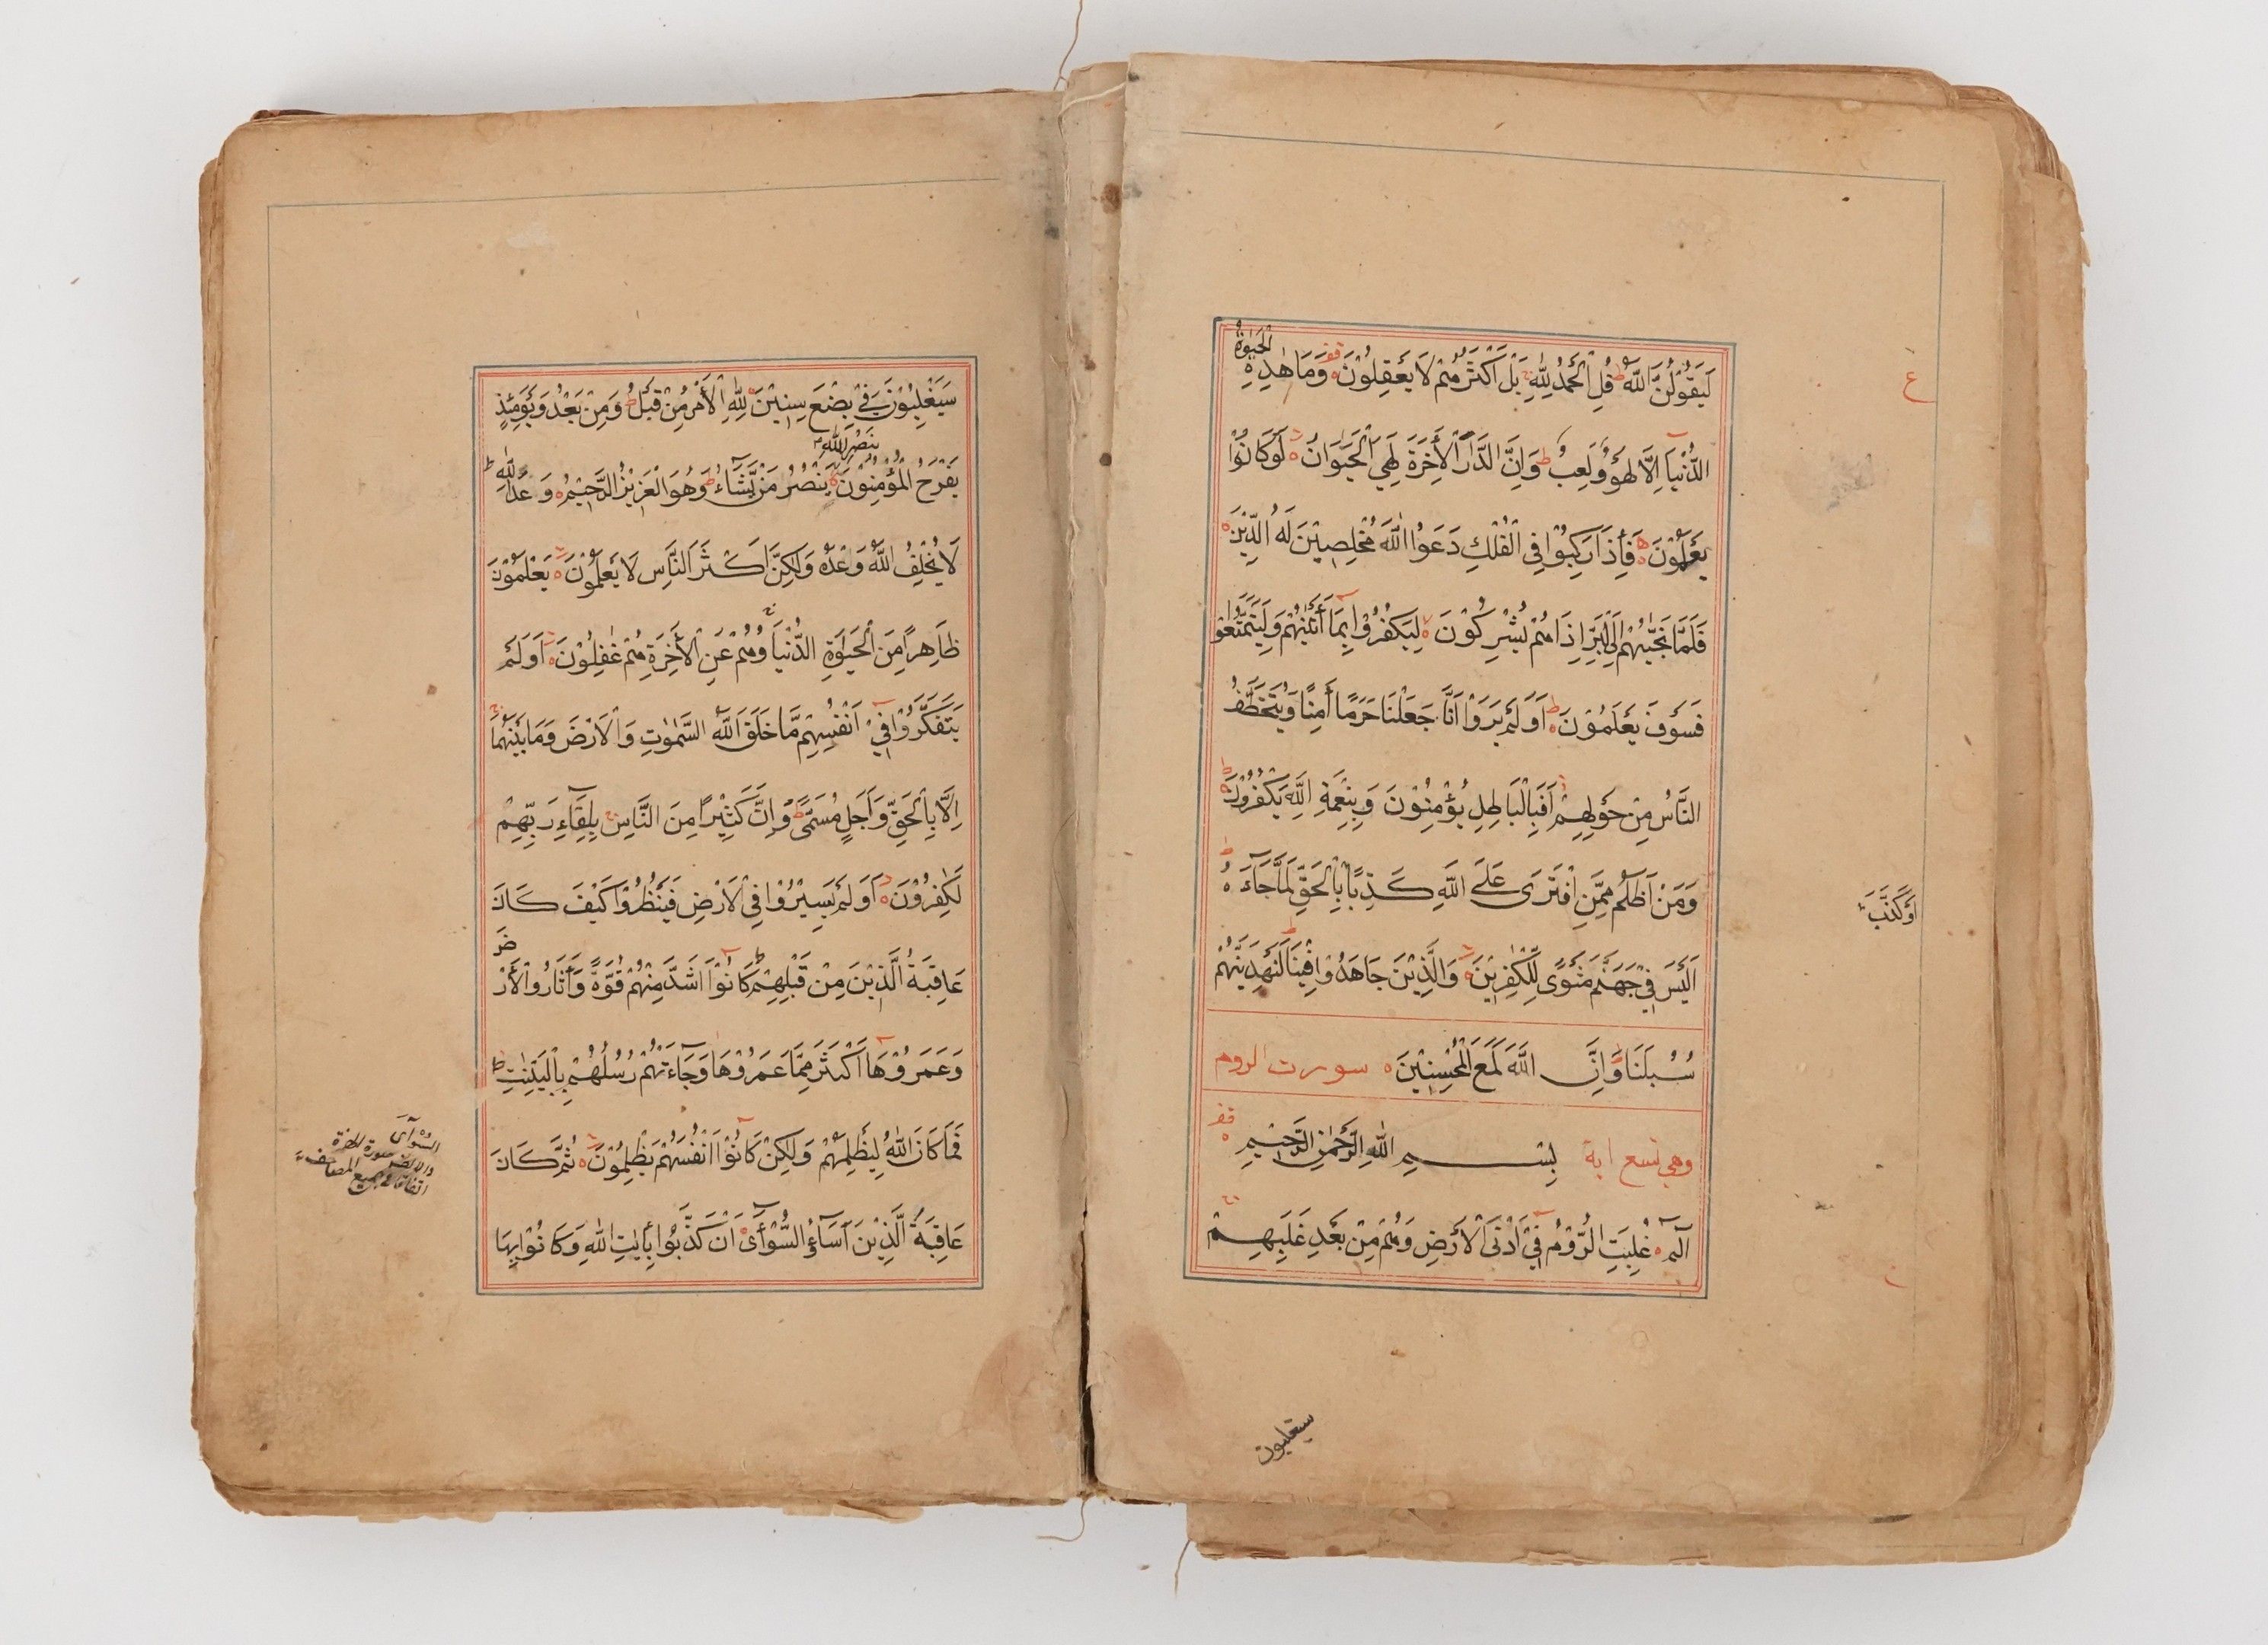 ع
الْحَيٰوةُ
لَيَقُوْلُنَّ اللّٰهُ ط قُلِ الْحَمْدُ لِلّٰهِ بَلْ اَكْثَرُهُمْ لَا يَعْقِلُوْنَ ه قف وَمَا هٰذِهِ
الدُّنْيَا اِلَّا لَهْوٌ وَّلَعِبٌ ط وَاِنَّ الدَّارَ الْاٰخِرَةَ لَهِيَ الْحَيَوَانُ ه لَوْ كَانُوْا
يَعْلَمُوْنَ ه فَاِذَا رَكِبُوْا فِي الْفُلْكِ دَعَوُا اللّٰهَ مُخْلِصِيْنَ لَهُ الدِّيْنَ ه
فَلَمَّا نَجّٰىهُمْ اِلَى الْبَرِّ اِذَا هُمْ يُشْرِكُوْنَ ه لِيَكْفُرُوْا بِمَا اٰتَيْنٰهُمْ وَلِيَتَمَتَّعُوْا
فَسَوْفَ يَعْلَمُوْنَ ه اَوَلَمْ يَرَوْا اَنَّا جَعَلْنَا حَرَمًا اٰمِنًا وَّيُتَخَطَّفُ
النَّاسُ مِنْ حَوْلِهِمْ اَفَبِالْبَاطِلِ يُؤْمِنُوْنَ وَبِنِعْمَةِ اللّٰهِ يَكْفُرُوْنَ ه
وَمَنْ اَظْلَمُ مِمَّنِ افْتَرٰى عَلَى اللّٰهِ كَذِبًا بِالْحَقِّ لَمَّا جَآءَهُ ط
اَوْ كَذَّبَ
اَلَيْسَ فِيْ جَهَنَّمَ مَثْوًى لِّلْكٰفِرِيْنَ ه وَالَّذِيْنَ جَاهَدُوْا فِيْنَا لَنَهْدِيَنَّهُمْ
سُبُلَنَا وَاِنَّ اللّٰهَ لَمَعَ الْمُحْسِنِيْنَ ه سورت الروم
وهي تسع اية بِسْمِ اللّٰهِ الرَّحْمٰنِ الرَّحِيْمِ قف
الٓمٓ ه غُلِبَتِ الرُّوْمُ فِيْ اَدْنَى الْاَرْضِ وَهُمْ مِنْ بَعْدِ غَلَبِهِمْ
سيغلبون
سَيَغْلِبُوْنَ فِيْ بِضْعِ سِنِيْنَ ه لِلّٰهِ الْاَمْرُ مِنْ قَبْلُ وَمِنْ بَعْدُ وَيَوْمَئِذٍ
بِنَصْرِ اللّٰهِ
يَفْرَحُ الْمُؤْمِنُوْنَ يَنْصُرُ مَنْ يَّشَآءُ ط وَهُوَ الْعَزِيْزُ الرَّحِيْمُ ه وَعْدَ اللّٰهِ ط
لَا يُخْلِفُ اللّٰهُ وَعْدَهُ وَلٰكِنَّ اَكْثَرَ النَّاسِ لَا يَعْلَمُوْنَ ه يَعْلَمُوْنَ
ظَاهِرًا مِنَ الْحَيٰوةِ الدُّنْيَا وَهُمْ عَنِ الْاٰخِرَةِ هُمْ غٰفِلُوْنَ ه اَوَلَمْ
يَتَفَكَّرُوْا فِيْ اَنْفُسِهِمْ مَّا خَلَقَ اللّٰهُ السَّمٰوٰتِ وَالْاَرْضَ وَمَا بَيْنَهُمَا
اِلَّا بِالْحَقِّ وَاَجَلٍ مُّسَمًّى ط وَاِنَّ كَثِيْرًا مِنَ النَّاسِ بِلِقَآءِ رَبِّهِمْ
لَكٰفِرُوْنَ ه اَوَلَمْ يَسِيْرُوْا فِي الْاَرْضِ فَيَنْظُرُوْا كَيْفَ كَانَ
عَاقِبَةُ الَّذِيْنَ مِنْ قَبْلِهِمْ ط كَانُوْا اَشَدَّ مِنْهُمْ قُوَّةً وَّاَثَارُوا الْاَرْضَ
وَعَمَرُوْهَا اَكْثَرَ مِمَّا عَمَرُوْهَا وَجَآءَتْهُمْ رُسُلُهُمْ بِالْبَيِّنٰتِ ط
فَمَا كَانَ اللّٰهُ لِيَظْلِمَهُمْ وَلٰكِنْ كَانُوْا اَنْفُسَهُمْ يَظْلِمُوْنَ ه ثُمَّ كَانَ
عَاقِبَةَ الَّذِيْنَ اَسَآءُوا السُّوْاٰى اَنْ كَذَّبُوْا بِاٰيٰتِ اللّٰهِ وَكَانُوْا بِهَا
السُّوْآى
صورة الهمزة
المصاحف